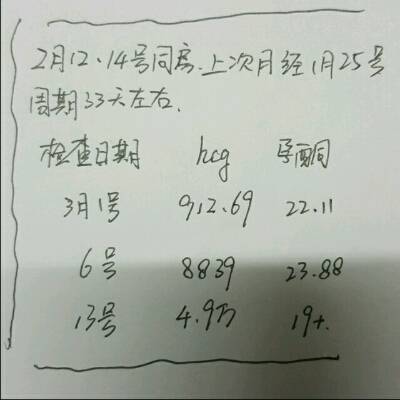 2月12、14号同房.上次月经1月25号
周期33天左右.
检查日期 hcg 孕酮
3月1号 912.69 22.11
6号 8839 23.88
13号 4.9万 19+.